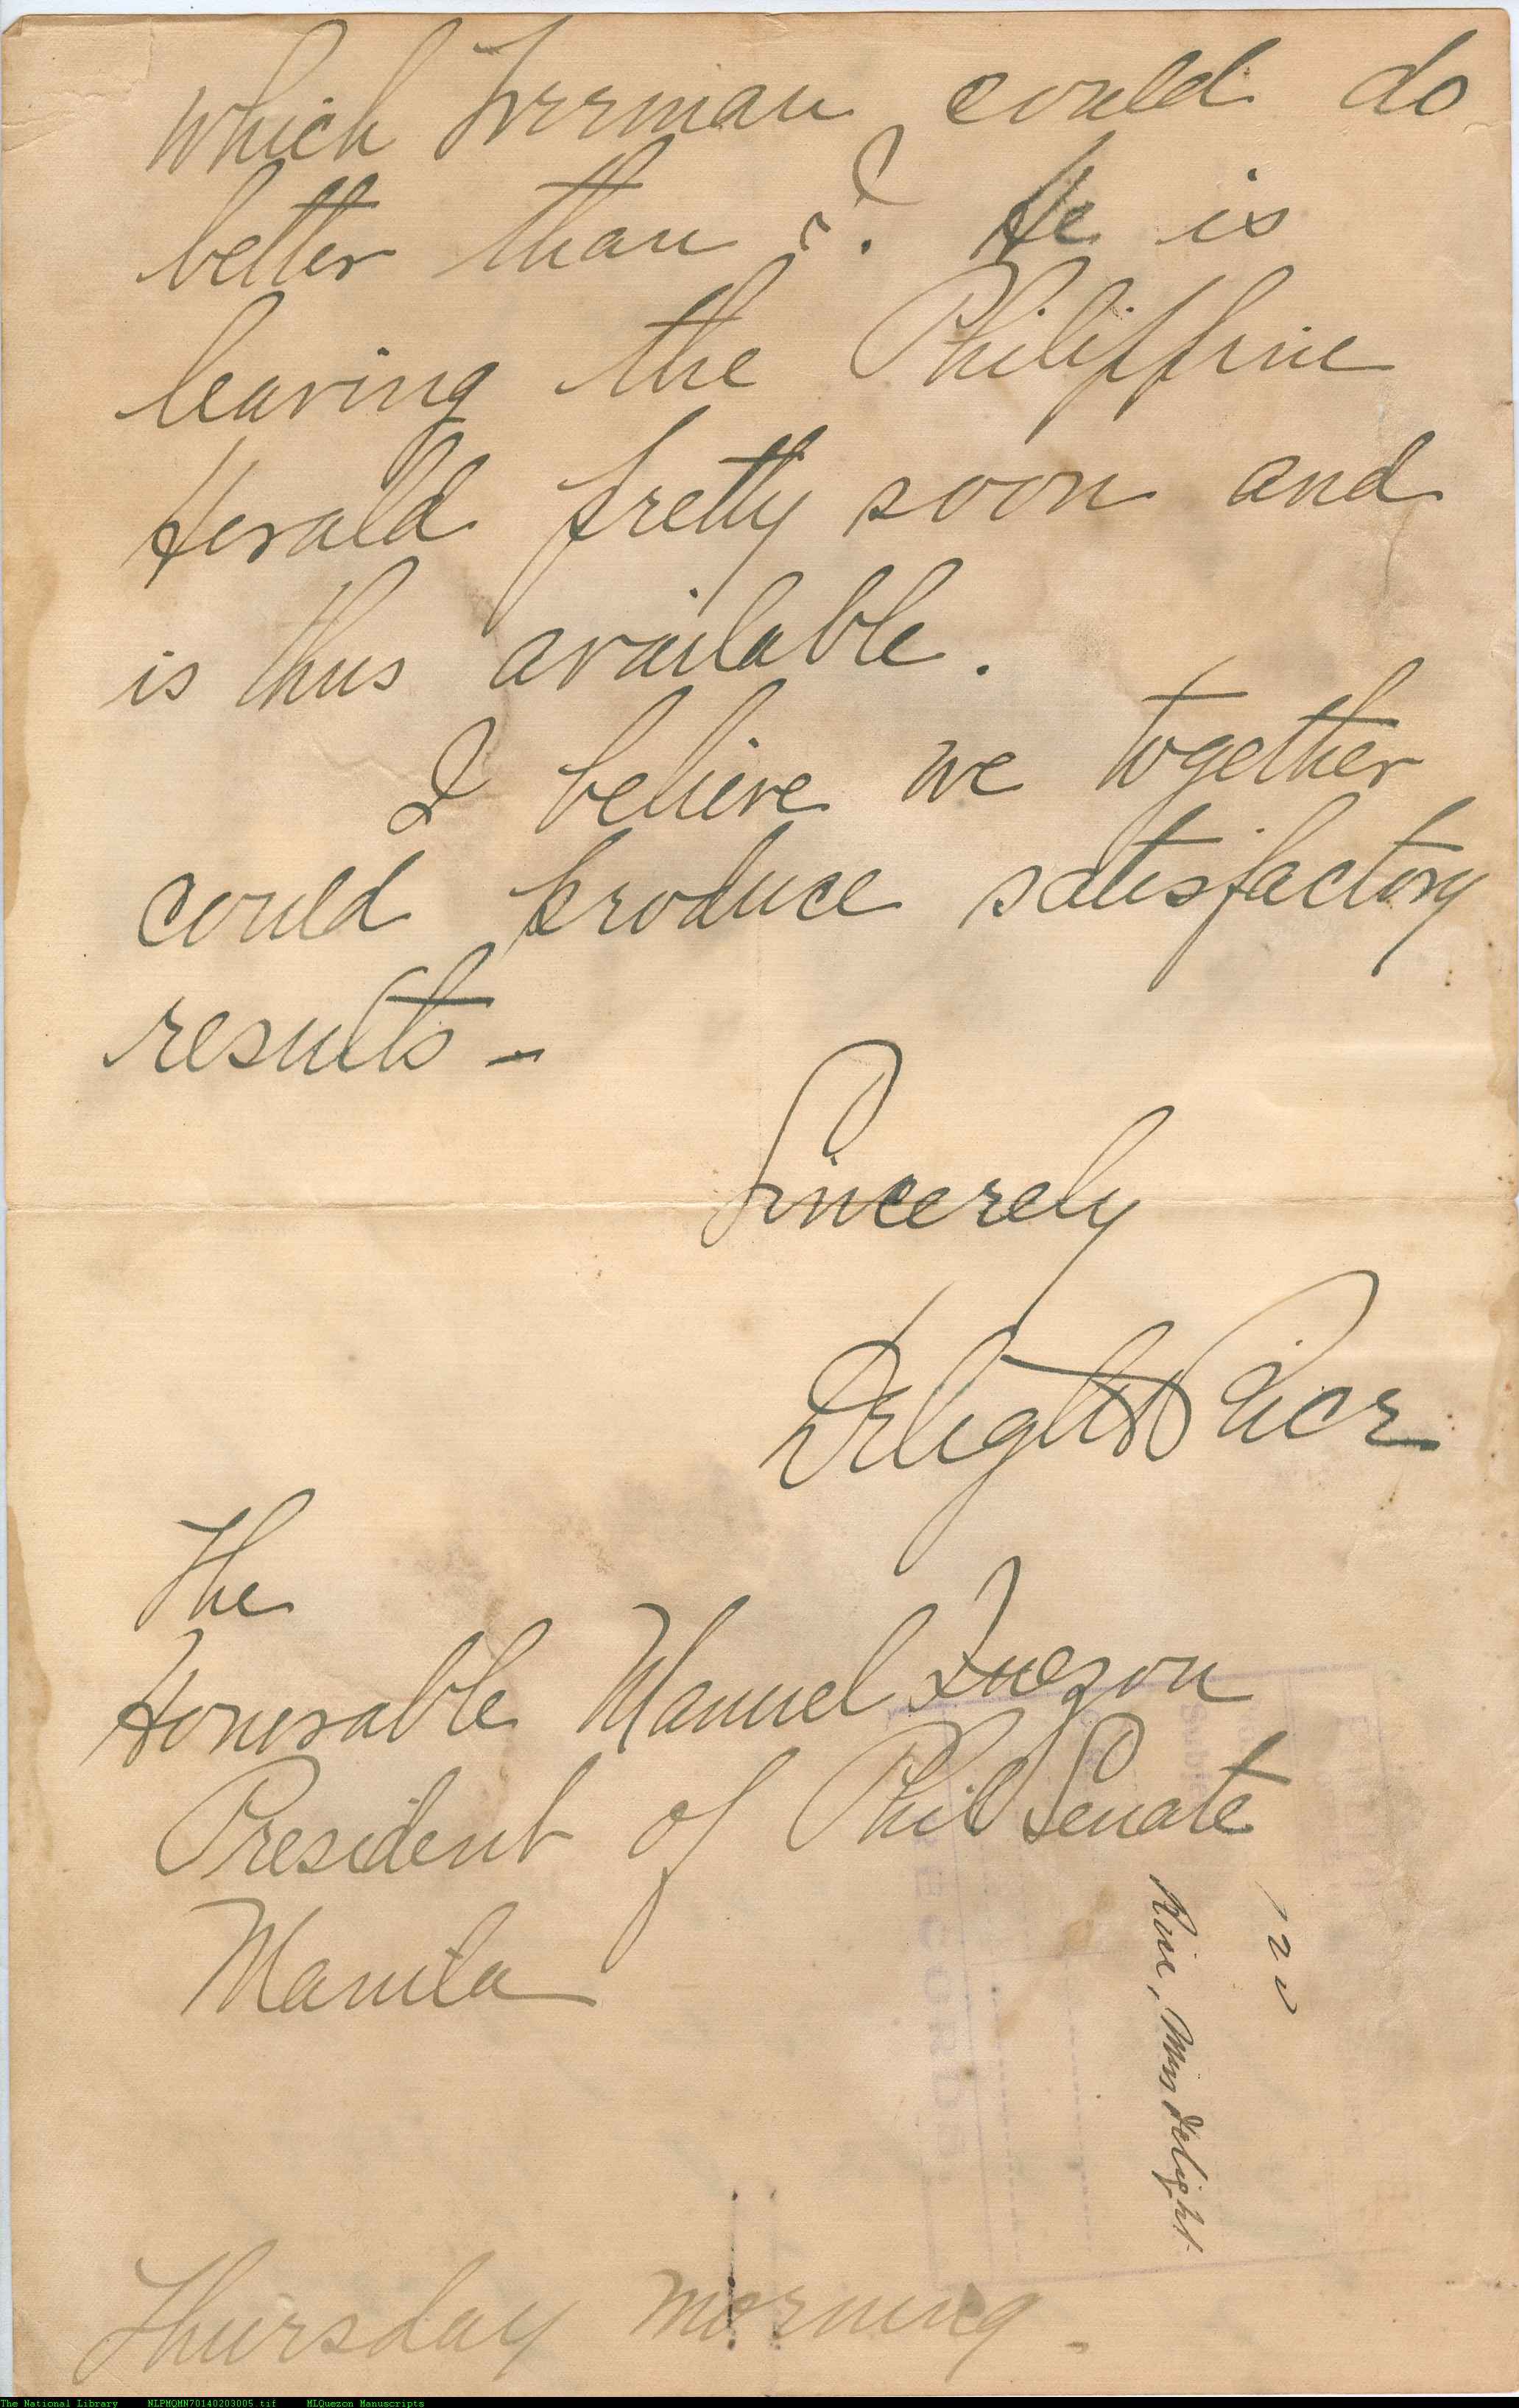 which Freeman could do
better than I. He is
leaving the Philippine
Herald pretty soon and
is thus available.
I believe we together
could produce satisfactory
results –
Sincerely
Delight Rice
The
Honorable Manuel Quezon
President of Phil Senate
Manila
Rice, Miss Delight
Thursday morning.
The National Library NLPMQMN70140203005.tif MLQuezon Manuscripts